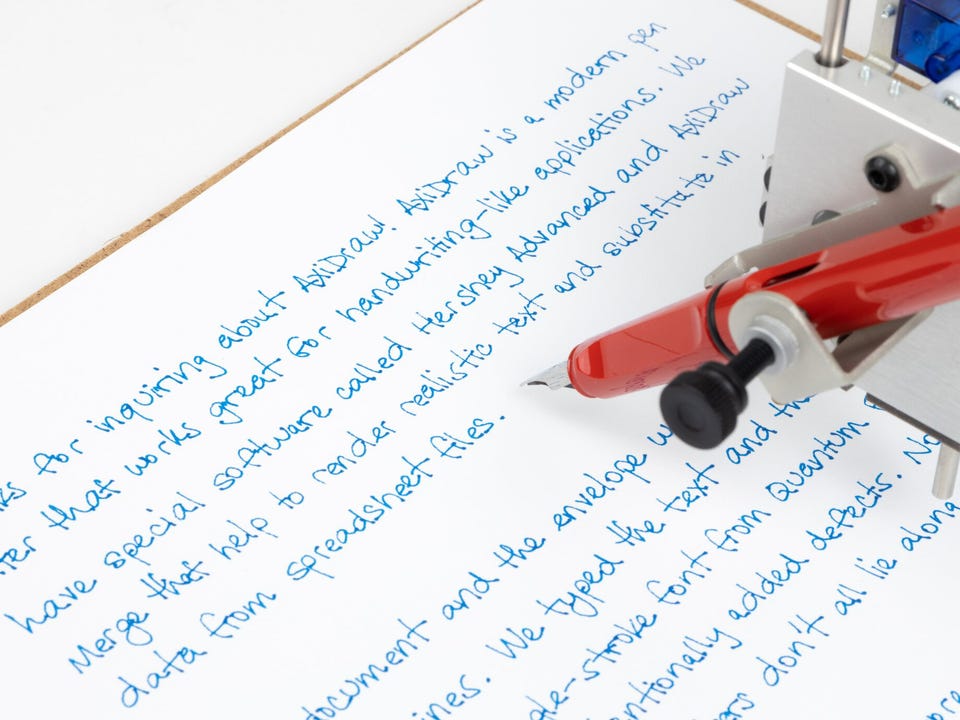 ks for inquiring about AxiDraw! AxiDraw is a modern pen
ter that works great for handwriting-like applications. We
have special software called Hershey Advanced and AxiDraw
Merge that help to render realistic text and substitute in
data from spreadsheet files.
document and the envelope w
ines. We typed the text and th
le-stroke font from Quantum
ntionally added defects. No
rs don't all lie along